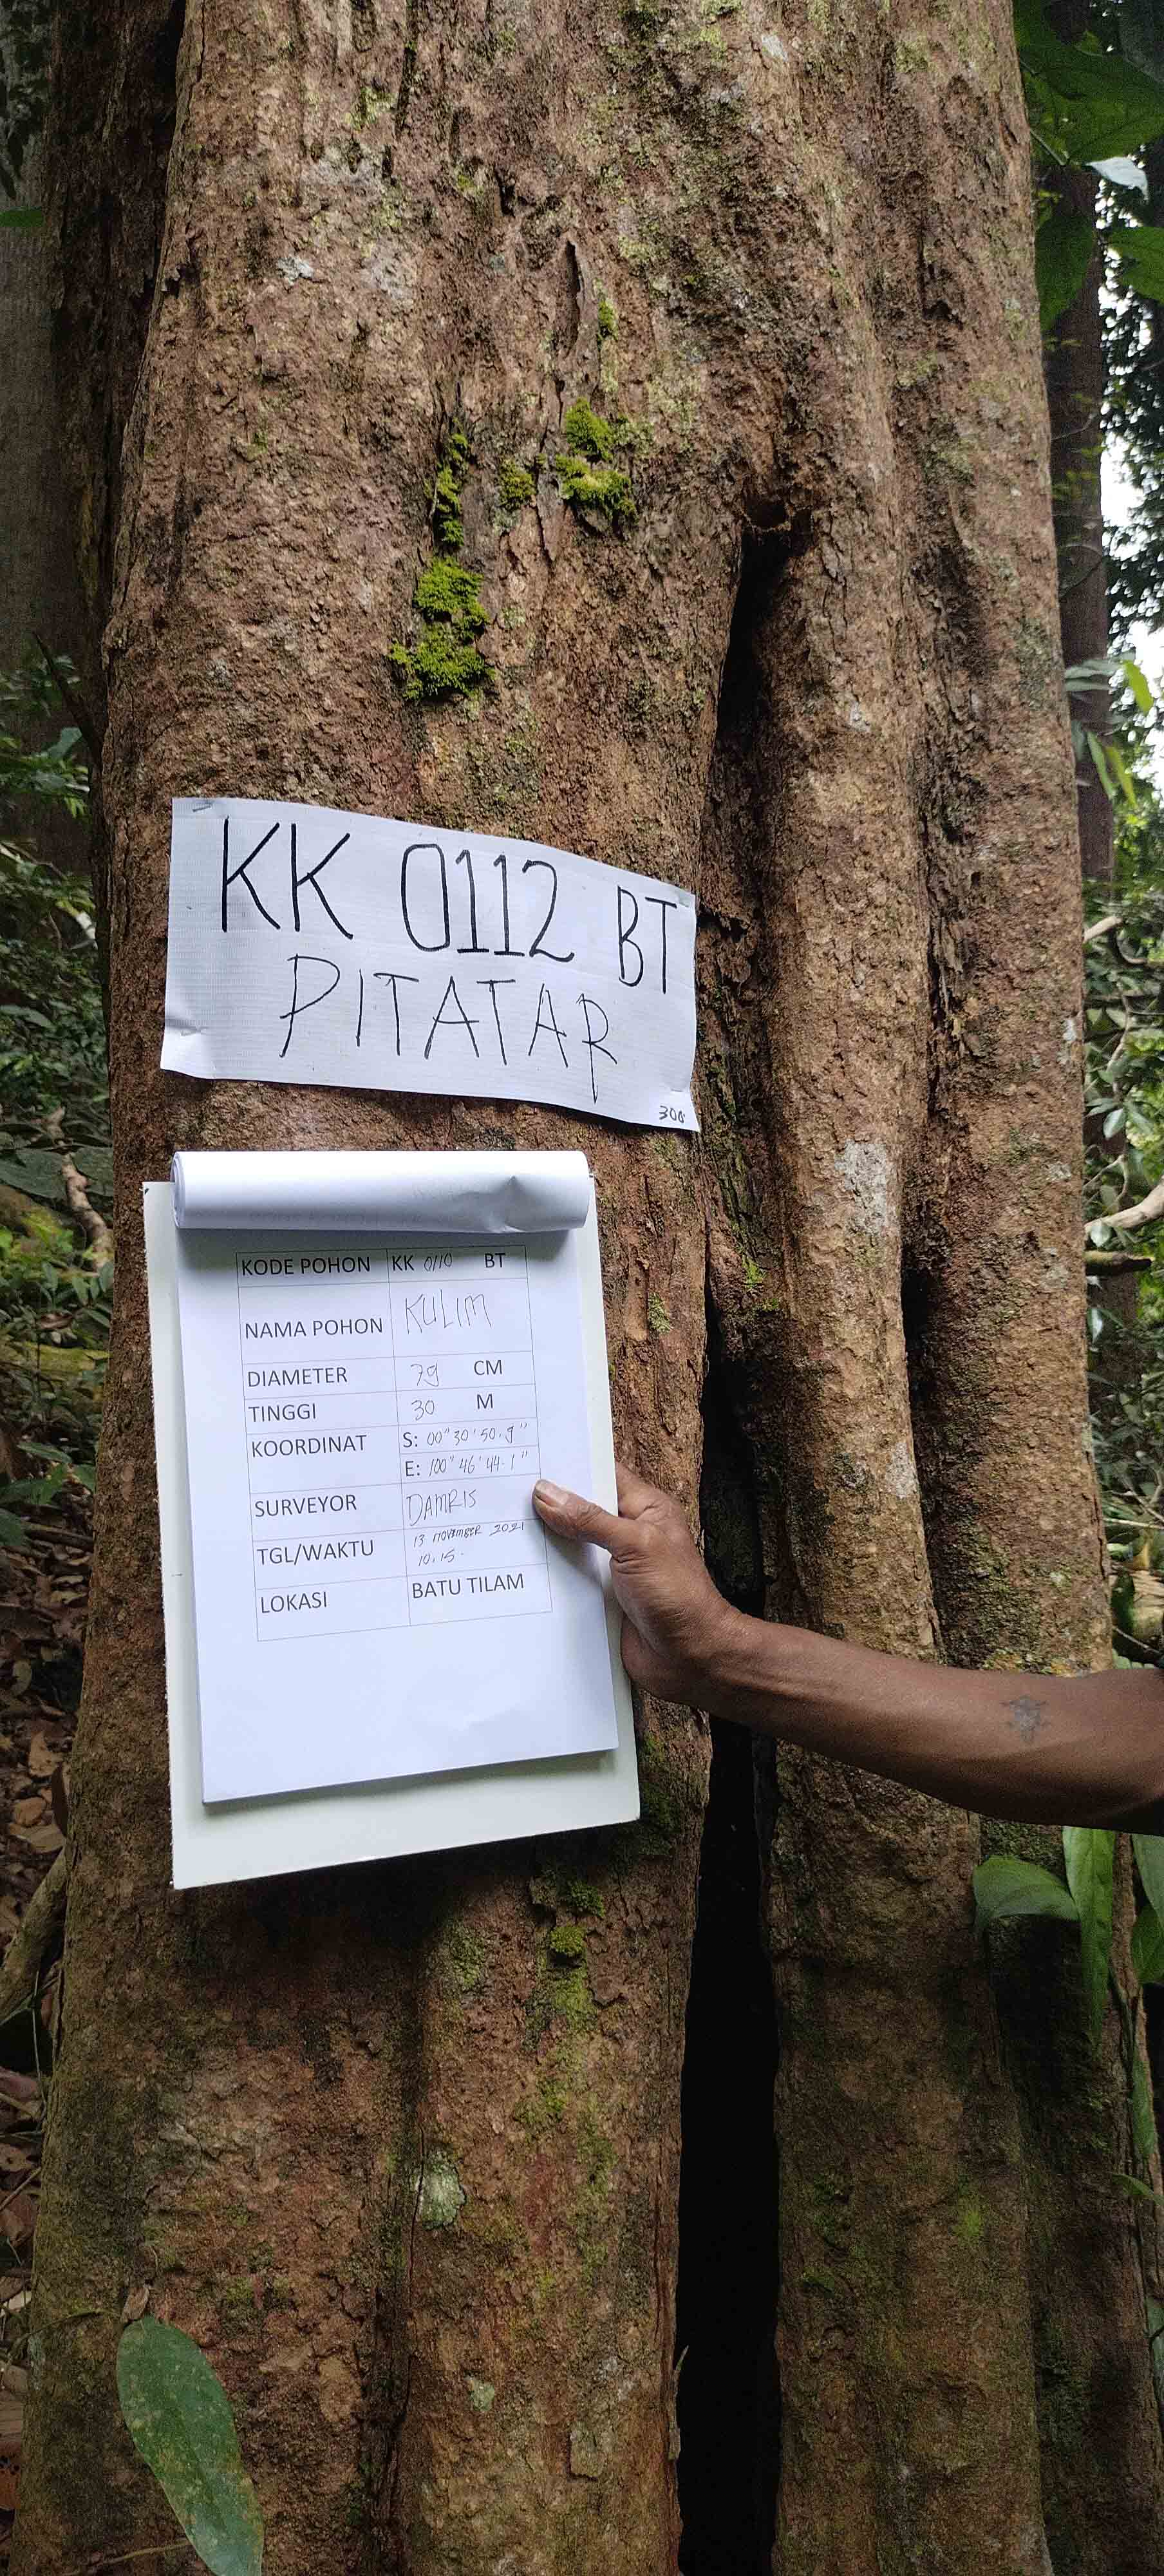 KK 0112 BT
PITATAR
300
KODE POHON KK 0110 BT
NAMA POHON KULIM
DIAMETER 79 CM
TINGGI 30 M
KOORDINAT S: 00° 30' 50.9"
E: 100° 46' 44.1"
SURVEYOR DAMRIS
TGL/WAKTU 13 NOVEMBER 2021
10.15.
LOKASI BATU TILAM